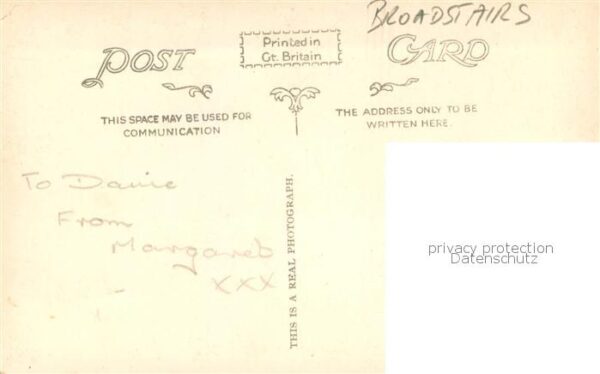 BROADSTAIRS
POST CARD
Printed in
Gt. Britain
THIS SPACE MAY BE USED FOR
COMMUNICATION
THE ADDRESS ONLY TO BE
WRITTEN HERE.
To Davie
From
Margaret
XXX
THIS IS A REAL PHOTOGRAPH.
privacy protection
Datenschutz